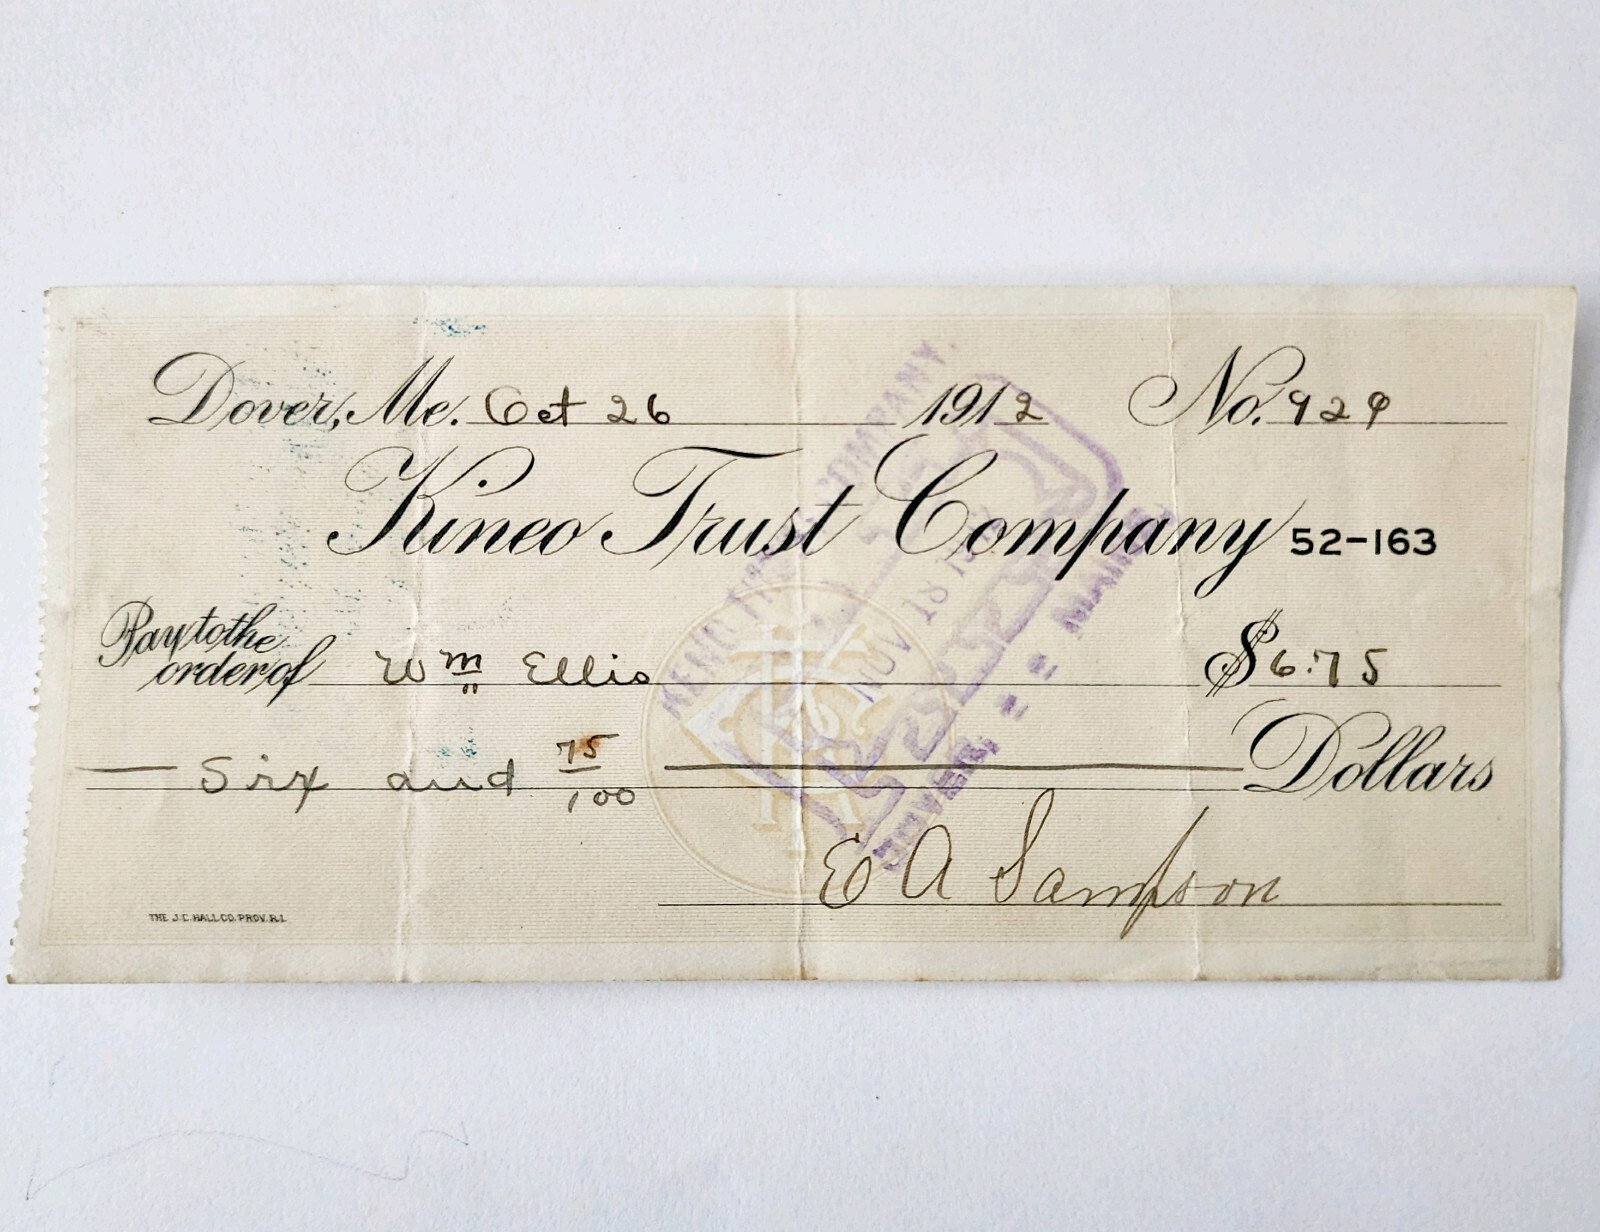 Dover, Me. Oct 26 1912 No. 929
Kineo Trust Company 52-163
Pay to the order of Wm Ellis $6.75
Six and 75/100 Dollars
E A Sampson
THE J.C. HALL CO. PROV. R.I.
KINEO TRUST COMPANY.
NOV 18
DOVER, MAINE